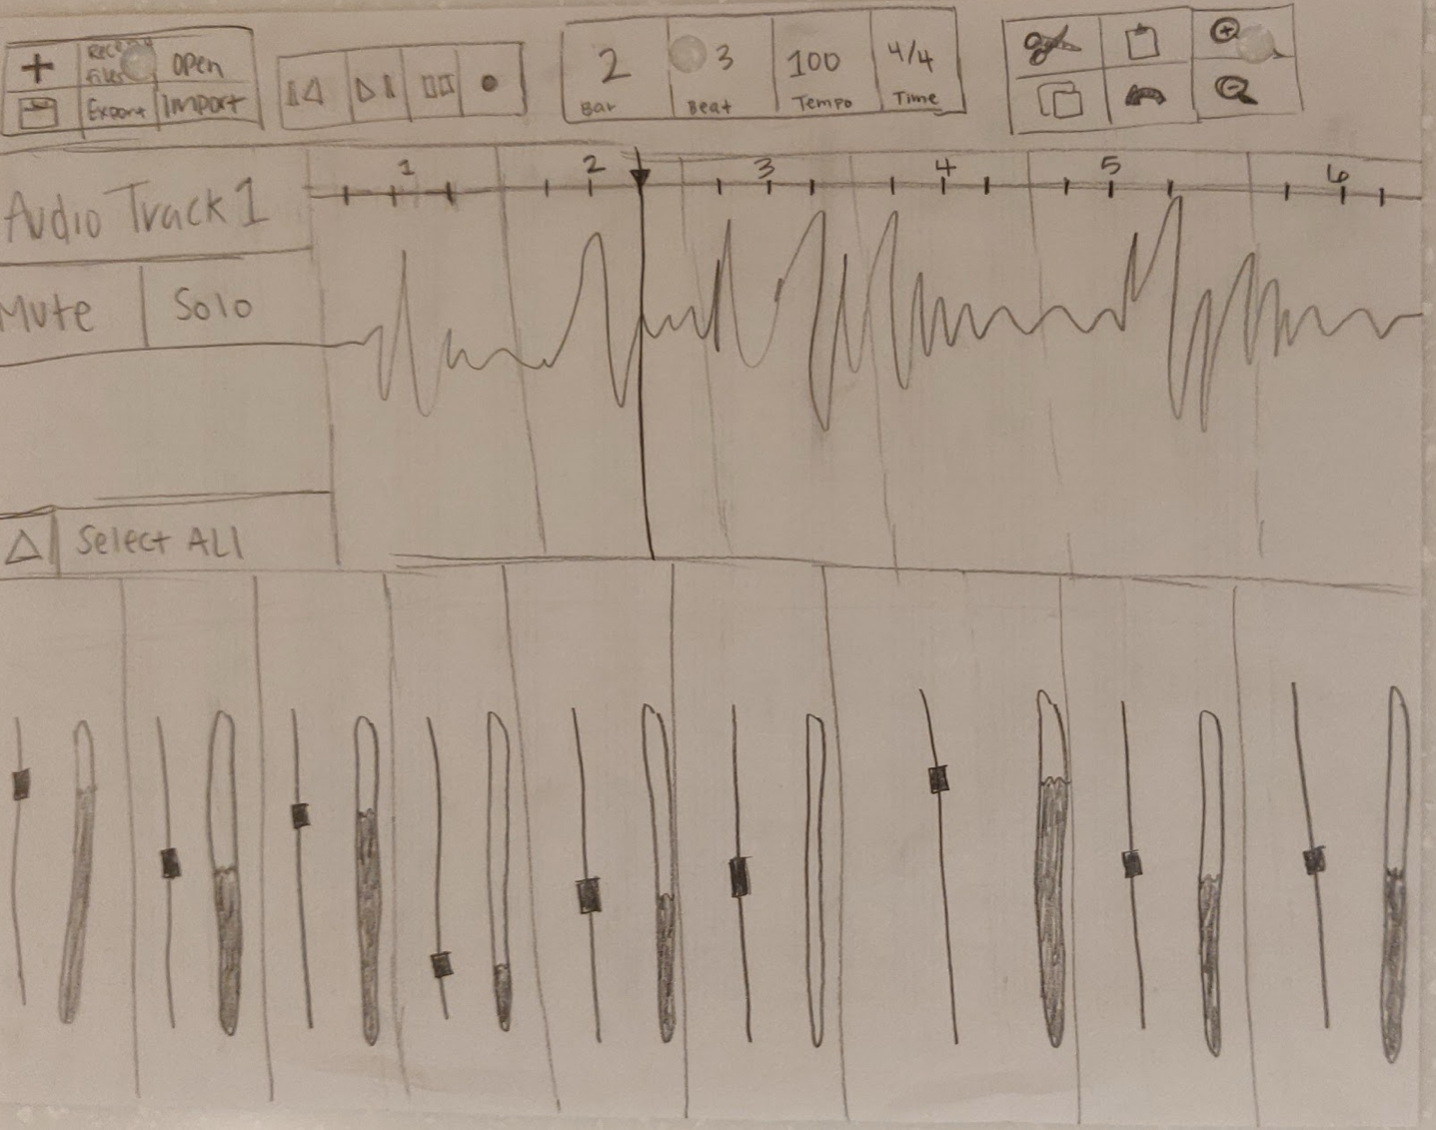 Recent Files
Open
Export
Import
2 3 100 4/4
Bar Beat Tempo Time
1 2 3 4 5 6
Audio Track 1
Mute
Solo
Select All